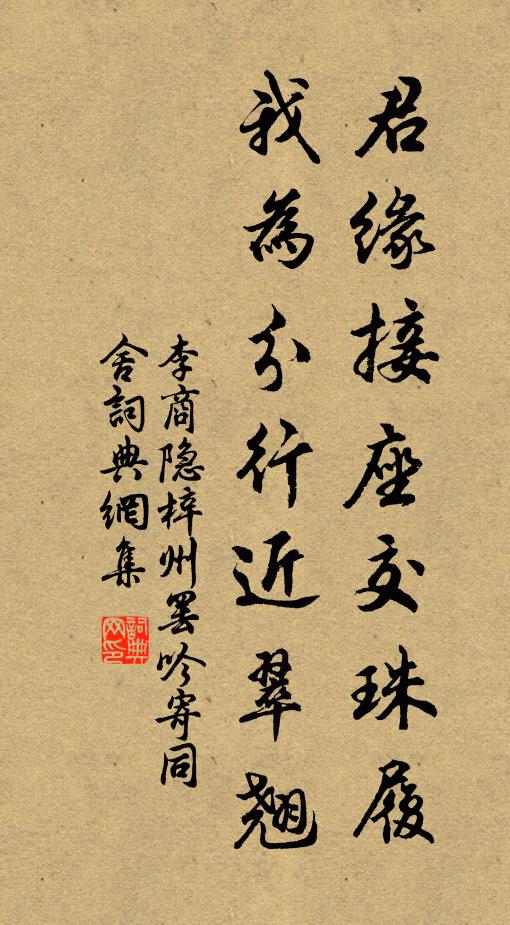 君缘接座交珠履
我為分行近翠翹
李商隐梓州罢吟寄同
舍詞典網集
詞典網印